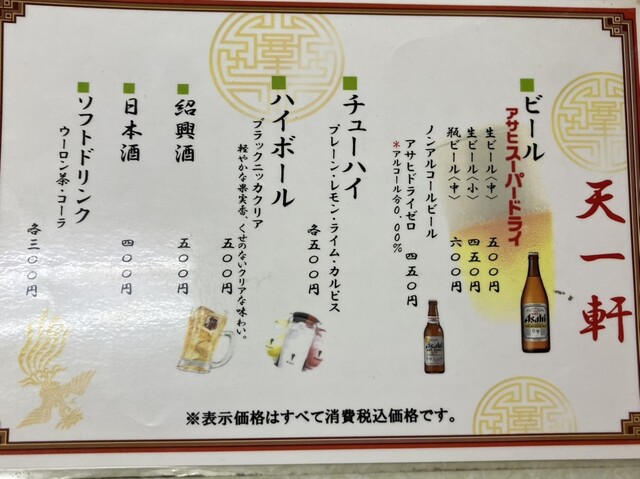 天一軒
■ビール
アサヒスーパードライ
生ビール〈中〉 五〇〇円
生ビール〈小〉 四五〇円
瓶ビール〈中〉 六〇〇円
ノンアルコールビール
アサヒドライゼロ 四五〇円
＊アルコール分0.00%
■チューハイ
プレーン・レモン・ライム・カルピス
各五〇〇円
■ハイボール
ブラックニッカクリア
軽やかな果実香、くせのないクリアな味わい。
五〇〇円
■紹興酒 五〇〇円
■日本酒 四〇〇円
■ソフトドリンク
ウーロン茶・コーラ
各三〇〇円
Asahi
Asahi
※表示価格はすべて消費税込価格です。